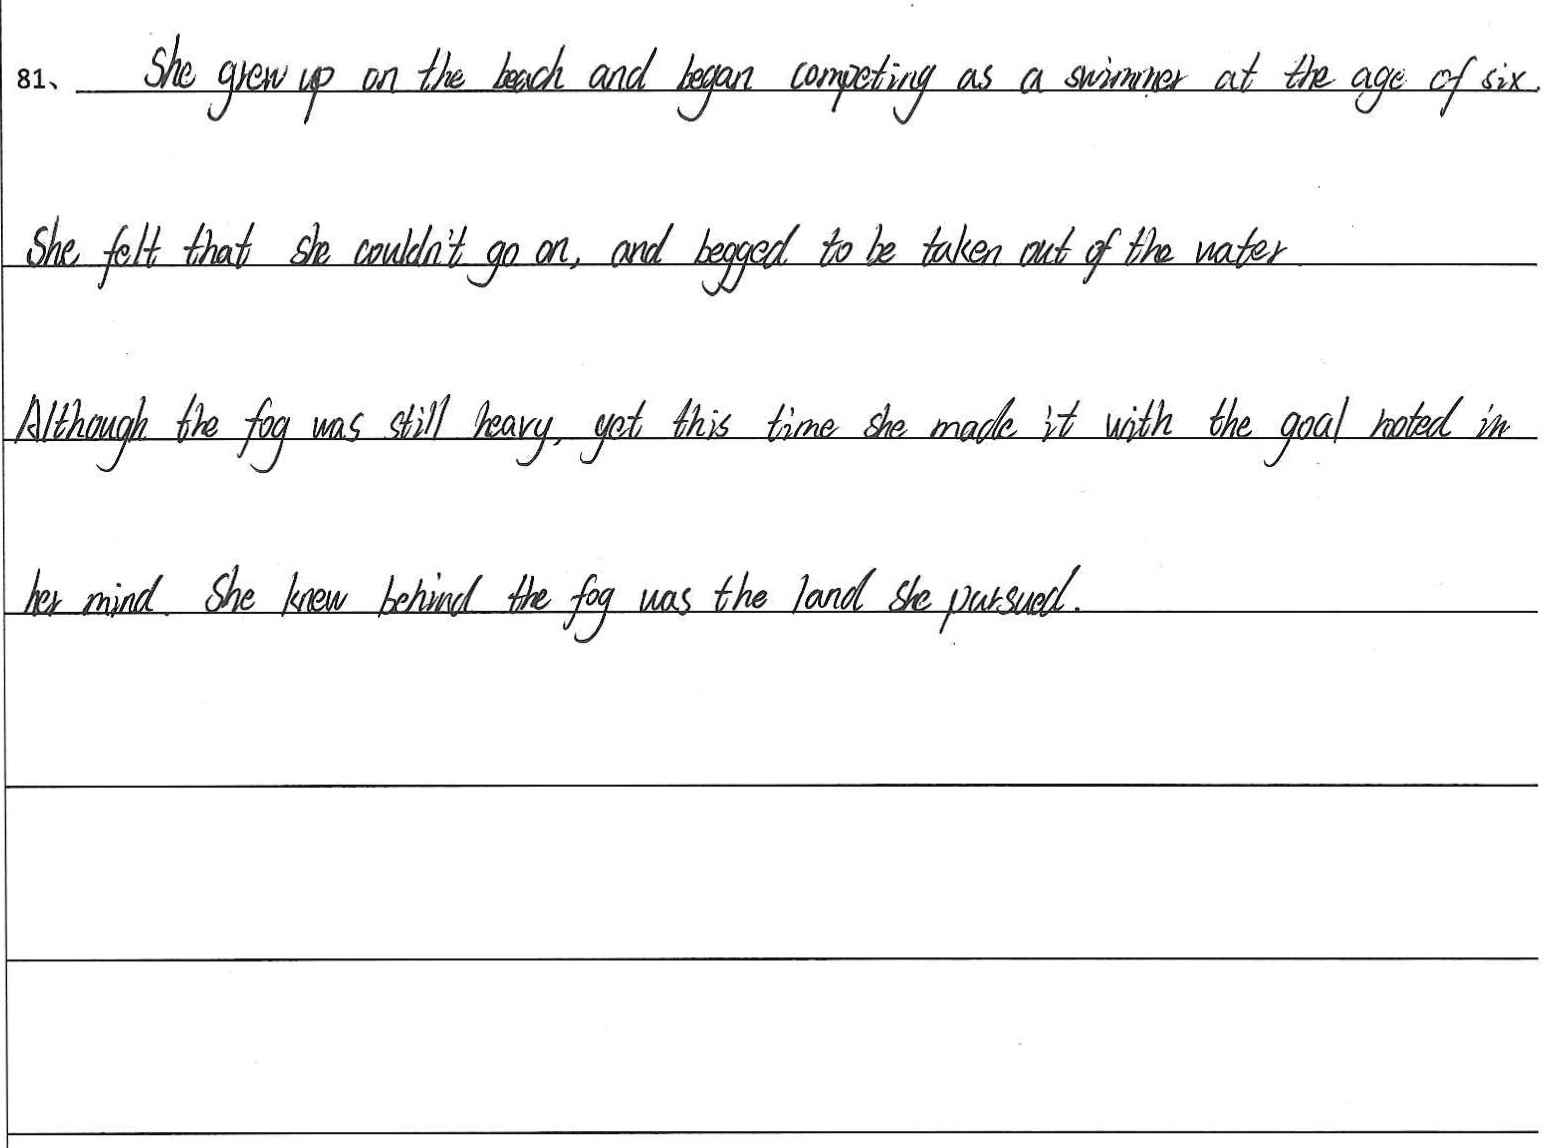 81、 She grew up on the beach and began competing as a swimmer at the age of six.
She felt that she couldn't go on, and begged to be taken out of the water.
Although the fog was still heavy, yet this time she made it with the goal rooted in
her mind. She knew behind the fog was the land she pursued.